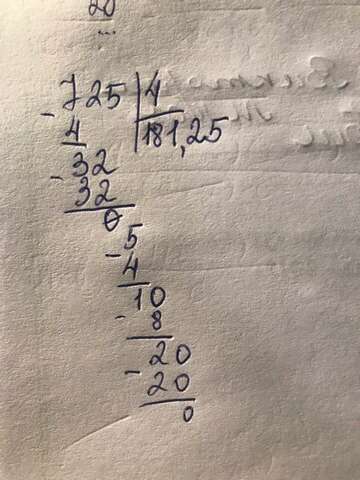 20
...
- 725 | 4
4 181,25
- 32
32
0
- 5
4
10
- 8
20
- 20
0